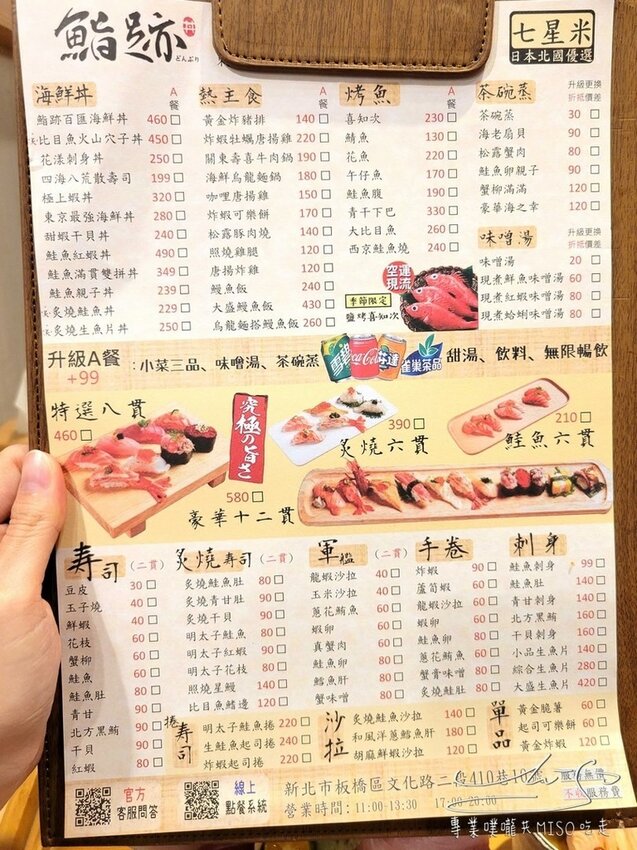 鮨跡
どんぶり
七星米
日本北國優選
海鮮丼 A餐
鮨跡百匯海鮮丼 460
比目魚火山穴子丼 450
花漾刺身丼 250
四海八荒散壽司 199
極上蝦丼 320
東京最強海鮮丼 280
甜蝦干貝丼 240
鮭魚紅蝦丼 490
鮭魚滿貫雙拼丼 349
鮭魚親子丼 239
炙燒鮭魚丼 229
炙燒生魚片丼 250
熱主食 A餐
黃金炸豬排 140
炸蝦牡蠣唐揚雞 220
關東壽喜牛肉鍋 190
海鮮烏龍麵鍋 180
咖哩唐揚雞 150
炸蝦可樂餅 170
松露豚肉燒 180
照燒雞腿 130
唐揚炸雞 120
鰻魚飯 240
大盛鰻魚飯 430
烏龍麵搭鰻魚飯 260
烤魚 A餐
喜知次 230
鯖魚 130
花魚 220
午仔魚 170
鮭魚腹 190
青干下巴 330
大比目魚 260
西京鮭魚燒 240
空運現流
季節限定
鹽烤喜知次
茶碗蒸 升級更換折抵價差
茶碗蒸 30
海老扇貝 90
松露蟹肉 80
鮭魚卵親子 90
蟹柳滿滿 120
豪華海之幸 120
味噌湯 升級更換折抵價差
味噌湯 20
現煮鮮魚味噌湯 60
現煮紅蝦味噌湯 80
現煮蛤蜊味噌湯 80
升級A餐 +99 :小菜三品、味噌湯、茶碗蒸 雪碧 Coca-Cola 芬達 雀巢茶品 甜湯、飲料、無限暢飲
特選八貫
460
究極の旨さ
390
炙燒六貫
210
鮭魚六貫
580
豪華十二貫
寿司 (二貫)
豆皮 30
玉子燒 40
鮮蝦 60
花枝 60
蟹柳 60
鮭魚 60
鮭魚肚 80
青甘 80
北方黑鮪 90
干貝 80
紅蝦 80
炙燒寿司 (二貫)
炙燒鮭魚肚 80
炙燒青甘肚 90
炙燒干貝 80
明太子鮭魚 80
明太子紅蝦 90
明太子花枝 80
照燒星鰻 140
比目魚鰭邊 120
捲寿司
明太子鮭魚捲 220
生鮭魚起司捲 220
炸蝦起司捲 220
軍艦 (二貫)
龍蝦沙拉 40
玉米沙拉 40
蔥花鮪魚 60
蝦卵 60
真蟹肉 60
鮭魚卵 80
鱈魚肝 80
蟹味噌 80
沙拉
炙燒鮭魚沙拉 140
和風洋蔥鱈魚肝 180
胡麻鮮蝦沙拉 120
手卷
炸蝦 90
蘆筍蝦 60
龍蝦沙拉 60
蝦卵 60
鮭魚卵 90
蔥花鮪魚 60
蟹膏味噌 80
炙燒鮭肚 90
刺身
鮭魚刺身 99
鮭魚肚 140
青甘刺身 140
北方黑鮪 160
干貝刺身 140
小品生魚片 140
綜合生魚片 280
大盛生魚片 420
單品
黃金脆薯 60
起司可樂餅 60
黃金炸蝦 120
官方客服問答
線上點餐系統
新北市板橋區文化路二段410巷10號
營業時間:11:00-13:30 17:00-20:00
不收服務費
專業噗嚨共MISO吃走